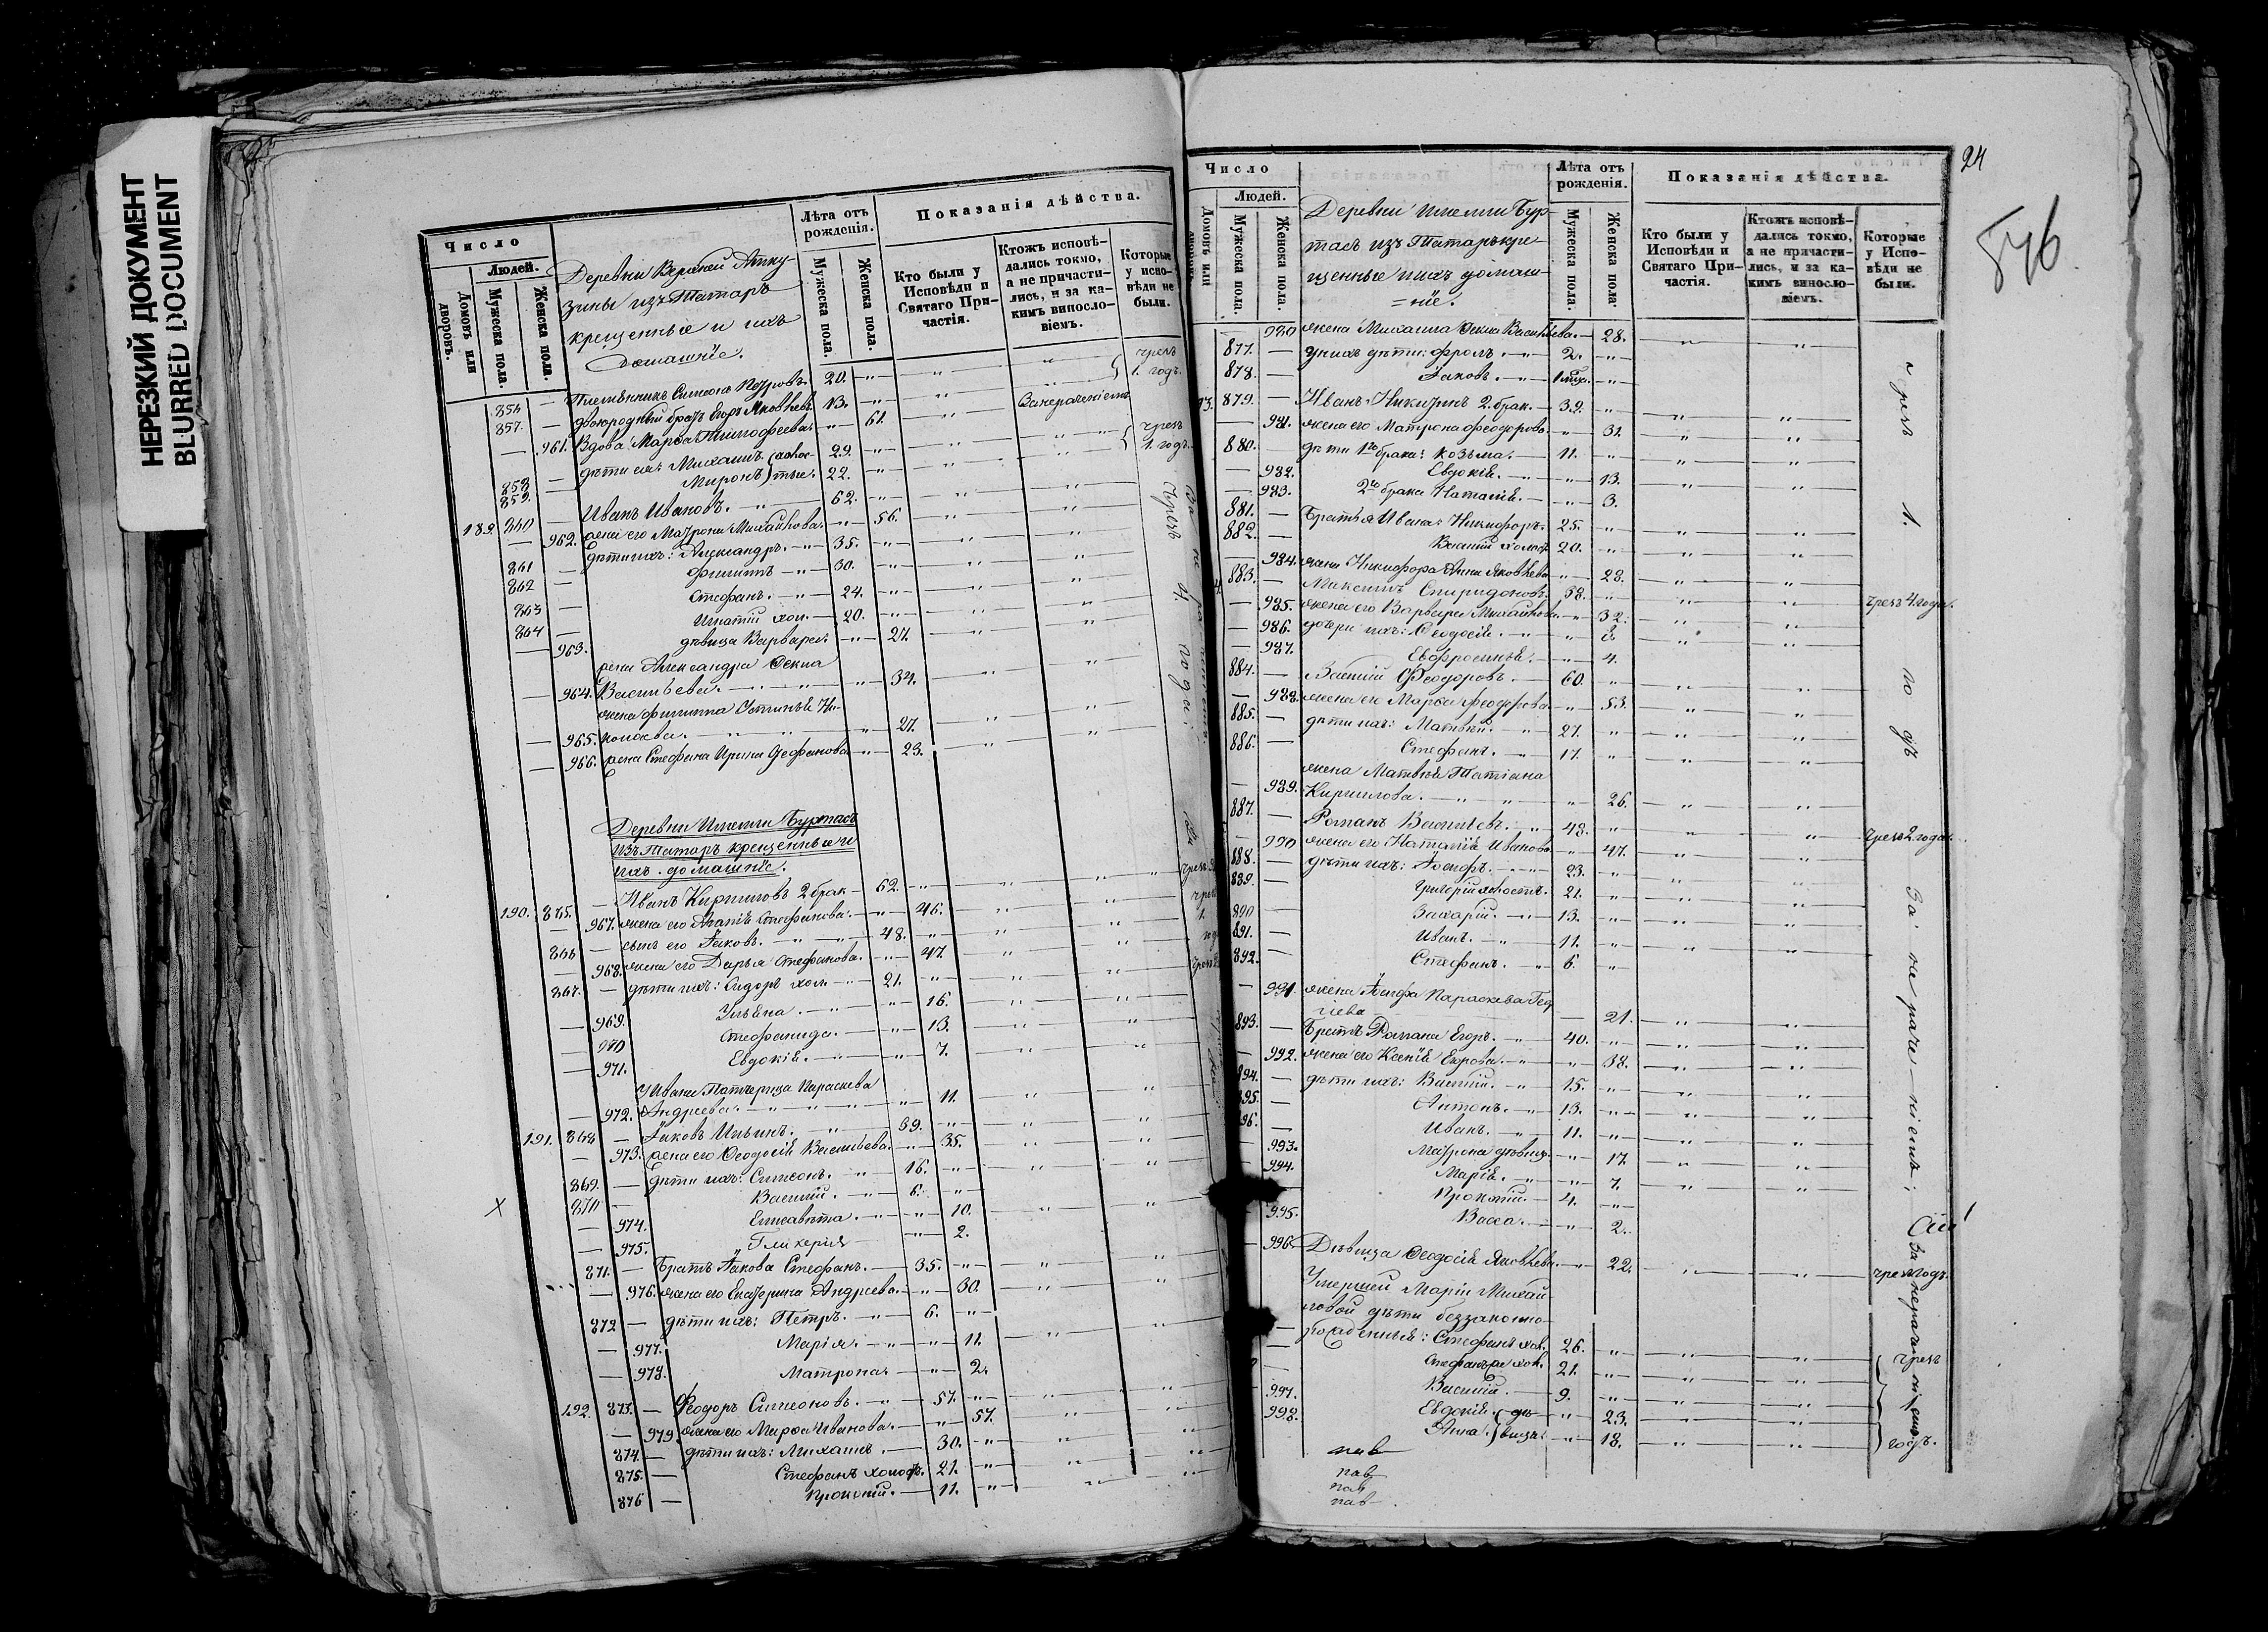 НЕРЕЗКИЙ ДОКУМЕНТ
BLURRED DOCUMENT
Число
Людей.
Домовъ или дворовъ.
Мужеска пола.
Женска пола.
Деревни Верхней Атку-
зины изъ Татаръ
крещенные и ихъ
домашніе.
Лѣта отъ рожденія.
Мужеска пола.
Женска пола.
Показанія дѣйства.
Кто были у Исповѣди и Святаго При-частія.
Ктожъ исповѣ-дались токмо, а не причасти-лись, и за ка-кимъ винословіемъ.
Которые у испо-вѣди не были.
856 — Племянникъ Симеонъ Петровъ. 20. чрезъ 1. годъ.
857. — двоюродный братъ Егоръ Яковлевъ 13.
— 961. Вдова Марѳа Тимофеева. 61. За нераченіемъ
858 — дѣти ея: Михаилъ 29. чрезъ 1. годъ.
859. — Миронъ 22.
189. 860 — Иванъ Ивановъ. 62.
— 962. жена его Матрона Михайлова. 56.
861 — дѣти ихъ: Александръ. 35.
862 — Филиппъ 30.
863 — Стефанъ. 24.
864 — Игнатій хол. 20.
— 963. дѣвица Варвара 27.
жена Александра Ѳекла
— 964. Васильева. 34.
жена Филиппа Устинья Ни-
— 965. колаева. 27.
— 966. жена Стефана Ирина Стефанова 23.
Деревни Имелли Буртасъ
изъ Татаръ крещенные и
ихъ домашніе.
190. 865. — Иванъ Кирилловъ 2 брак. 62.
— 967. жена его Агапія Стефанова. 46.
866 — сынъ его Іаковъ. 48.
— 968. жена его Дарья Стефанова. 47.
867. — дѣти ихъ: Сидоръ хол. 21.
— 969. Ульяна. 16.
— 970 Стефанида. 13.
— 971. Евдокія. 7.
У Ивана Патчерица Параскева
— 972. Андреева. 11.
191. 868 — Іаковъ Ильинъ. 39.
— 973. жена его Ѳеодосія Васильева. 35.
869. — дѣти ихъ: Симеонъ. 16.
870 — Василій. 6.
— 974. Елисавета. 10.
— 975. Гликерія 2.
871. — Братъ Іакова Стефанъ. 35.
— 976. жена его Екатерина Андреева. 30.
872 — дѣти ихъ: Петръ. 6.
— 977. Марія. 11.
— 978. Матрона. 2.
192. 873. — Ѳеодоръ Симеоновъ. 57.
— 979. жена его Марѳа Иванова. 57.
874. — дѣти ихъ: Михаилъ. 30.
875. — Стефанъ холост. 21.
876 — Прокопій. 11.
24
546.
Число
Людей.
Домовъ или
Мужеска пола.
Женска пола
Деревни Имелли Бур-
тасъ изъ Татаръ кре-
щенные и ихъ домаш-
=ніе.
Лѣта отъ рожденія.
Мужеска пола.
Женска пола.
Показанія дѣйства.
Кто были у Исповѣди и Святаго При-частія.
Ктожъ исповѣ-дались токмо, а не причасти-лись, и за ка-кимъ винослo-віемъ.
Которые у Испо-вѣди не были.
— 980 жена Михаила Ѳекла Васильева. 28.
877. — у нихъ дѣти: Фролъ. 2.
878. — Іаковъ.
879. — Иванъ Никитинъ 2. брак. 39.
— 981. жена его Матрона Ѳеодорова 31.
880. — дѣти 1го брака: Козьма. 11.
— 982. Евдокія. 13.
— 983. 2го брака Наталія. 3.
881. — Братья Ивана: Никифоръ. 25.
882. — Василій холост. 20.
— 984. жена Никифора Анна Яковлева 28.
883. — Максимъ Спиридоновъ. 58. чрезъ 4 года.
— 985. жена его Варвара Михайлова. 32.
— 986. дочери ихъ: Ѳеодосія.
— 987. Евфросинья. 4.
884. — Василій Ѳеодоровъ. 60.
— 988. жена его Марѳа Ѳеодорова 53.
885. — дѣти ихъ: Матвѣй. 27.
886. — Стефанъ. 17.
жена Матвѣя Татіана
— 989. Кириллова. 26.
887. — Романъ Васильевъ. 48. чрезъ 2 года.
— 990 жена его Наталія Иванова 47.
888. — дѣти ихъ: Іосифъ. 23.
889. — Григорій холост. 21.
890 — Захарій. 13.
891. — Иванъ. 11.
892. — Стефанъ. 6.
— 991. жена Іосифа Параскева Гео
гіева 21.
893. — Братъ Романа Егоръ. 40.
— 992. жена его Ксенія Егорова. 38.
894. — дѣти ихъ: Василій. 15.
895. — Антонъ. 13.
896. — Иванъ. 11.
— 993. Матрона дѣвица. 17.
— 994. Марія. 7.
Прокопій. 4.
— 995. Васса. 2.
— 996. Дѣвица Ѳеодосія Яковлева. 22. чрез 1 годъ.
Умершей Маріи Михай-
ловой дѣти беззаконно-
рожденныя: Стефанъ хол. 26. чрезъ
Стефанъ же хол. 21.
Василій. 9.
997. Евдокія. дѣ- 23.
998. Анна. вицы. 18. годъ.
чрезъ 1. годъ За нераченіемъ.
За нераченіемъ